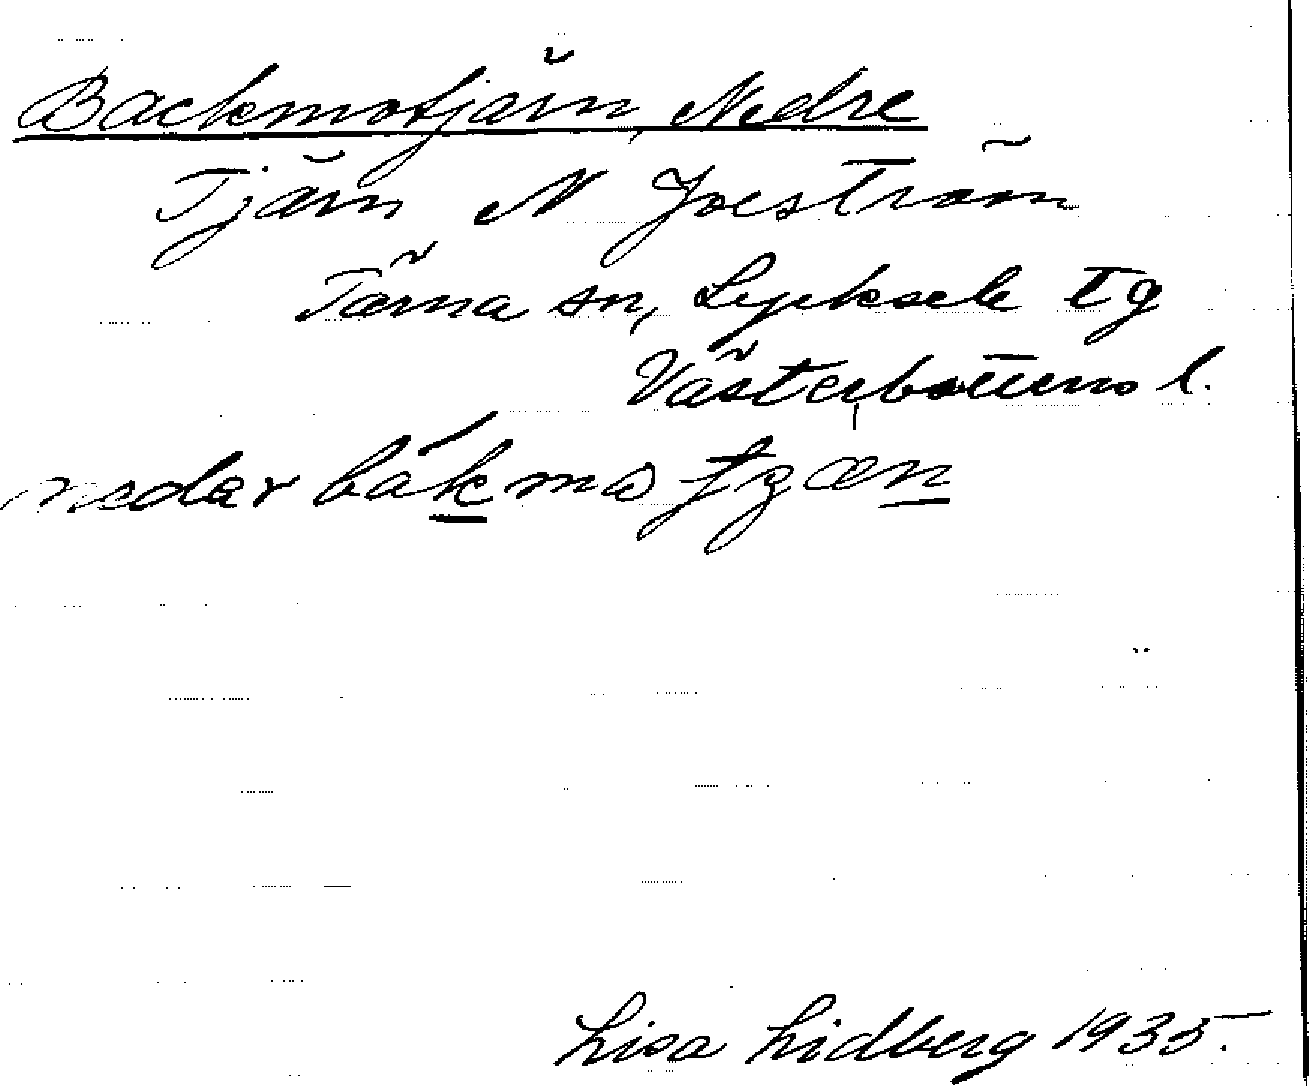 Backmotjärn, Nedre
Tjärn N Joeström
Tärna sn, Lycksele tg
Västerbottens l.
Lisa Lidberg 1935.